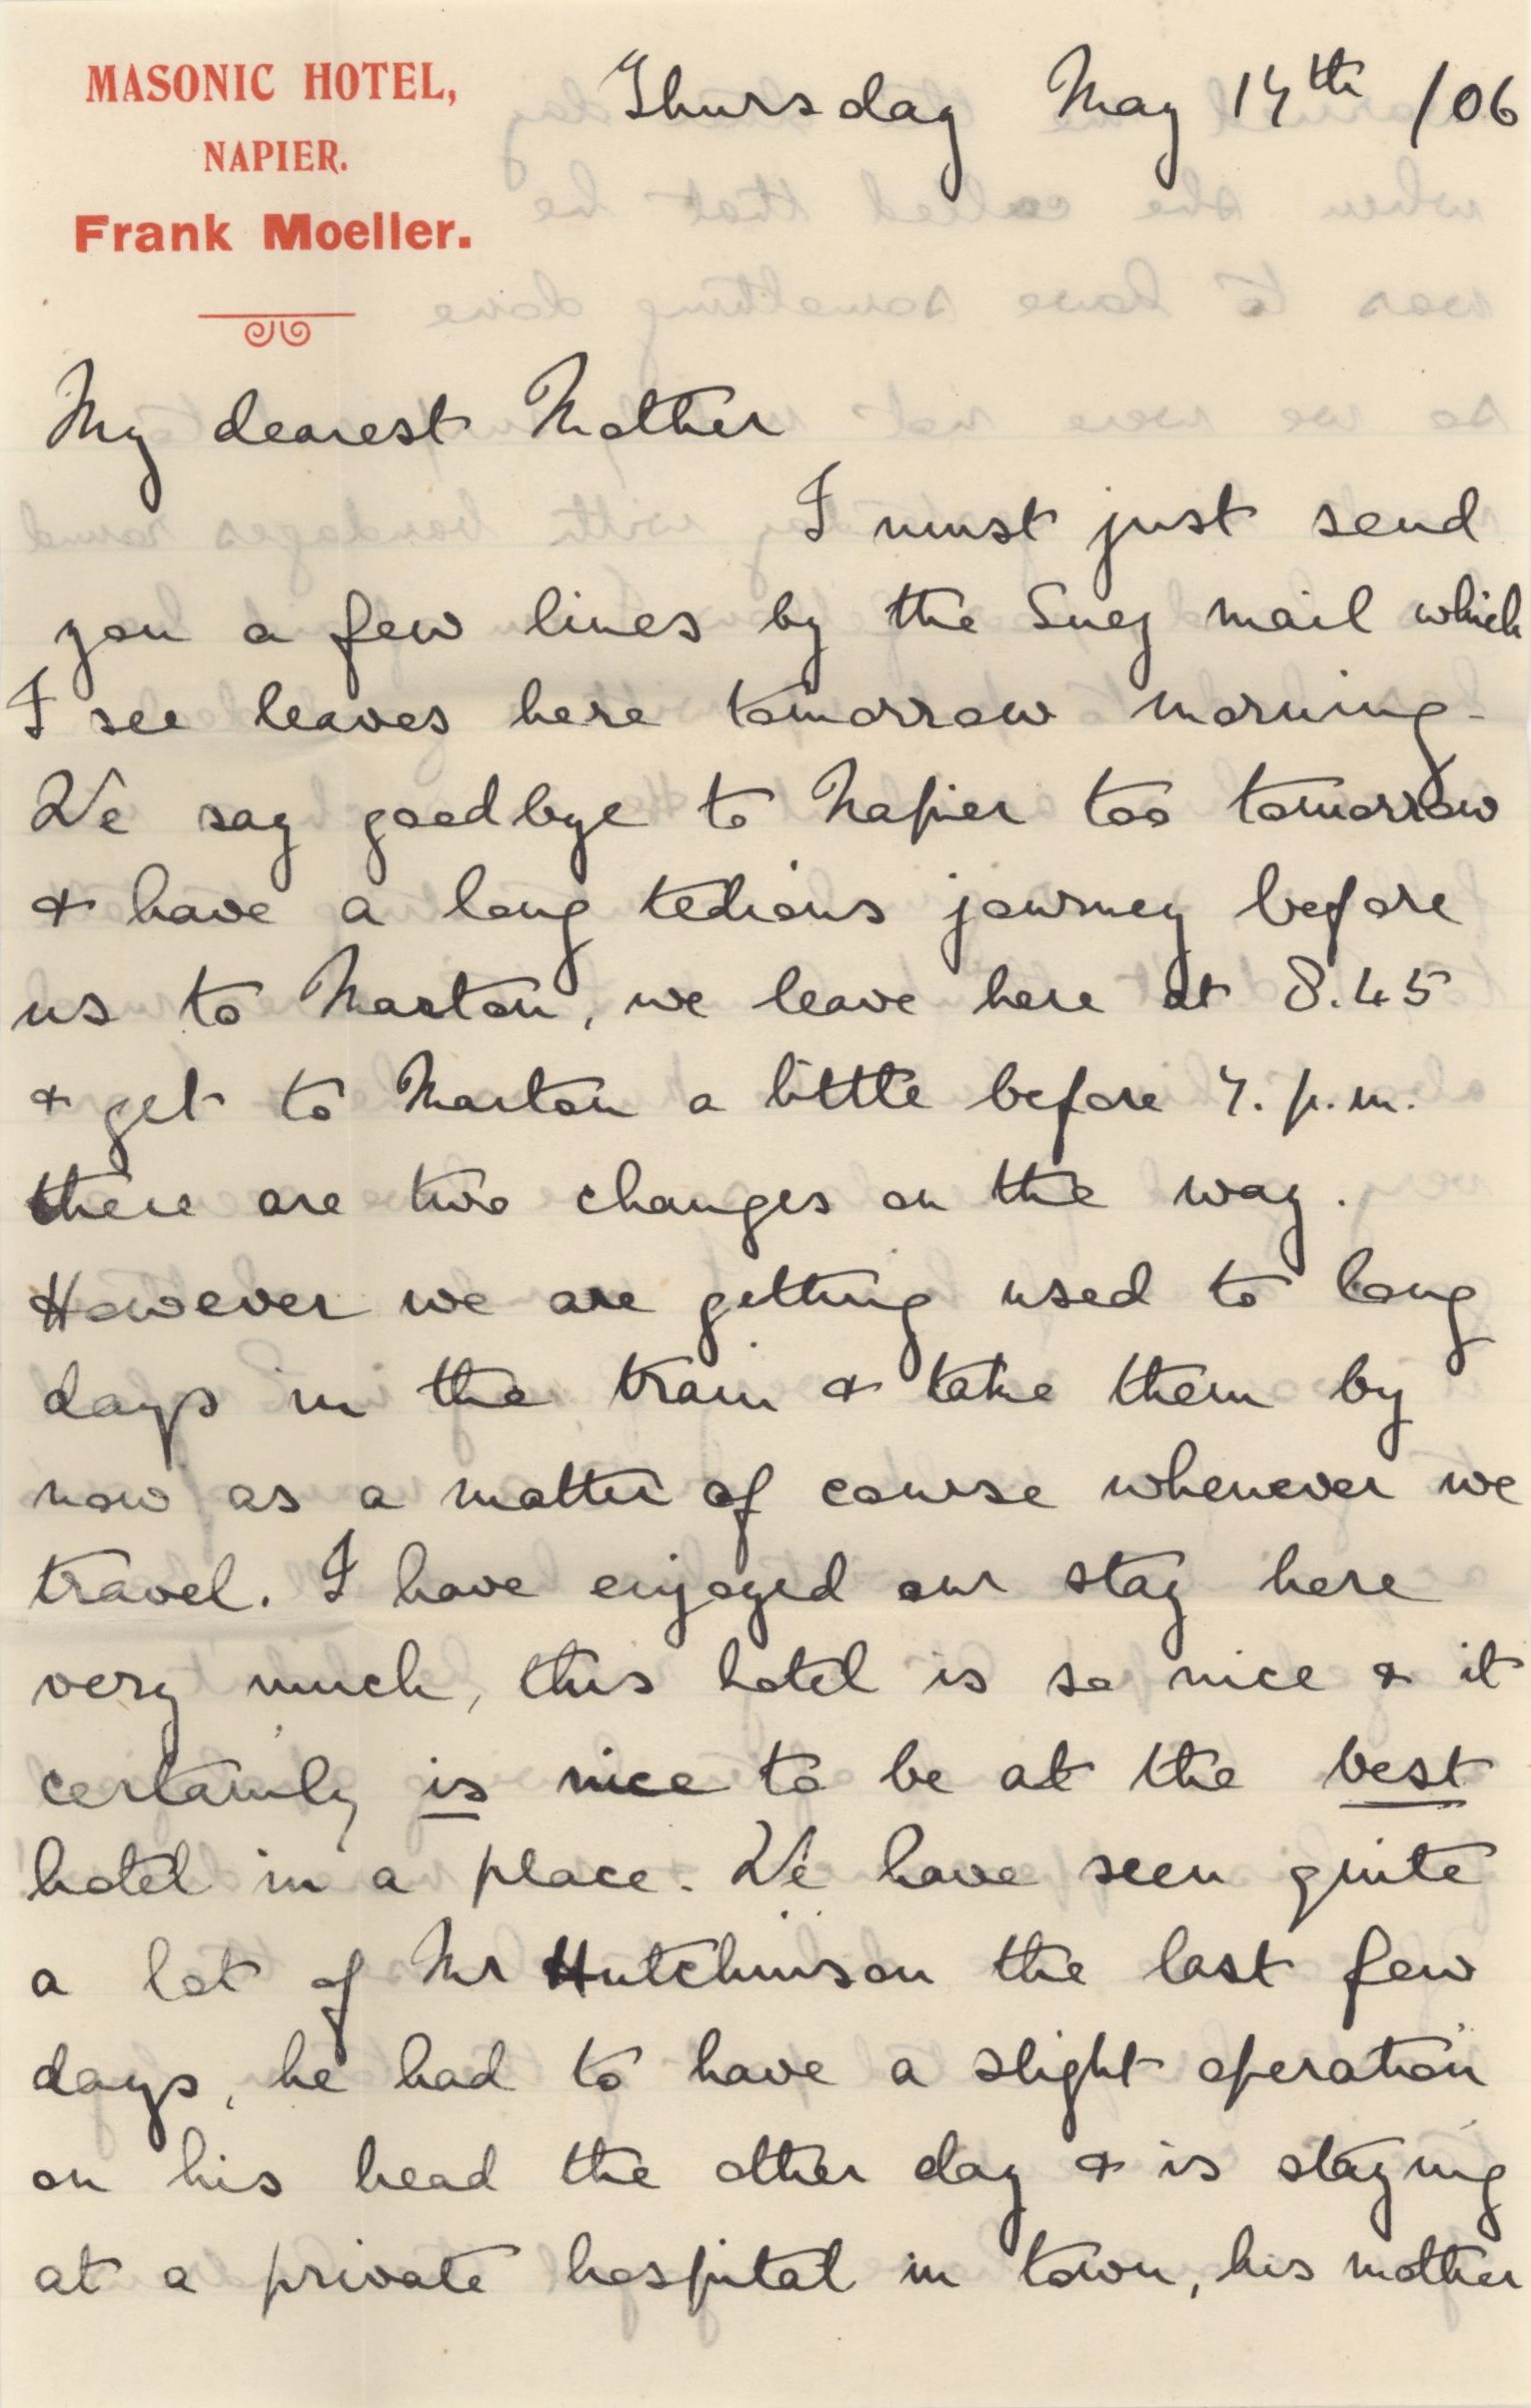 MASONIC HOTEL,
NAPIER.
Frank Moeller.
Thursday May 17th /06
My dearest Mother
I must just send
you a few lines by the Suez mail which
I see leaves here tomorrow morning.
We say goodbye to Napier too tomorrow
& have a long tedious journey before
us to Marton, we leave here at 8.45
& get to Marton a little before 7. p.m.
there are two changes on the way.
However we are getting used to long
days in the train & take them by
now as a matter of course whenever we
travel. I have enjoyed our stay here
very much, this hotel is so nice & it
certainly is nice to be at the best
hotel in a place. We have seen quite
a lot of Mr Hutchinson the last few
days, he had to have a slight operation
on his head the other day & is staying
at a private hospital in town, his mother